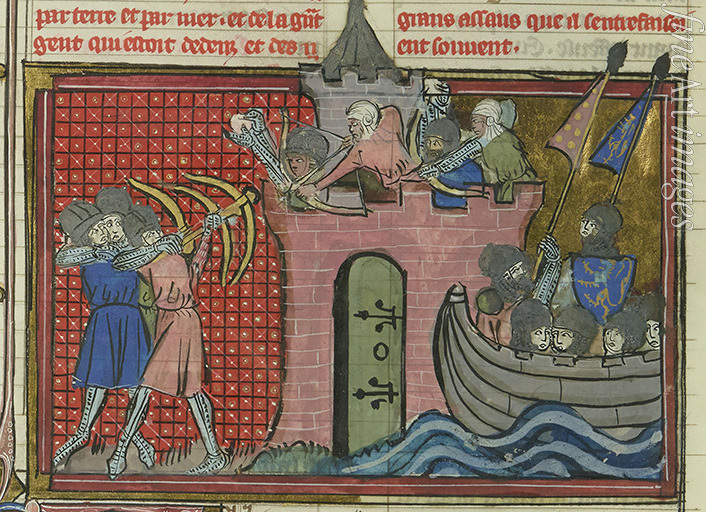 par terre et par mer. et cela gñt
gent qui estoit dedenz et des
grans assaus que il sentrefaisoi
ent souuent.
fine art images